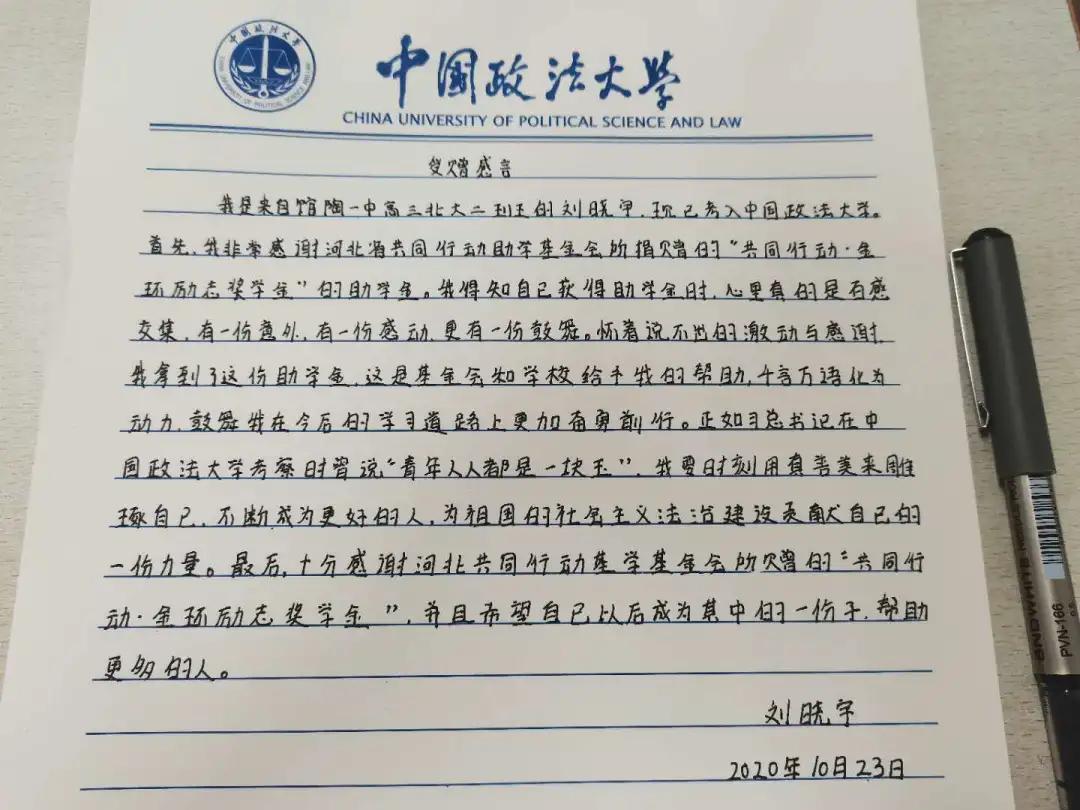 中国政法大学
CHINA UNIVERSITY OF POLITICAL SCIENCE AND LAW
中国政法大学
CHINA UNIVERSITY OF POLITICAL SCIENCE AND LAW
受赠感言
我是来自馆陶一中高三北大二班的刘晓宇,现已考入中国政法大学。
首先,我非常感谢河北省共同行动助学基金会所捐赠的“共同行动·金
环励志奖学金”的助学金。我得知自己获得助学金时,心里真的是百感
交集,有一份意外,有一份感动,更有一份鼓舞。怀着说不出的激动与感谢,
我拿到了这份助学金,这是基金会和学校给予我的帮助,千言万语化为
动力,鼓舞我在今后的学习道路上更加奋勇前行。正如习总书记在中
国政法大学考察时曾说“青年人人都是一块玉”,我要时刻用真善美来雕
琢自己,不断成为更好的人,为祖国的社会主义法治建设贡献自己的
一份力量。最后,十分感谢河北共同行动基学基金会所赠的“共同行
动·金环励志奖学金”,并且希望自己以后成为其中的一份子,帮助
更多的人。
刘晓宇
2020年10月23日
SNOWHITE
PVN-166